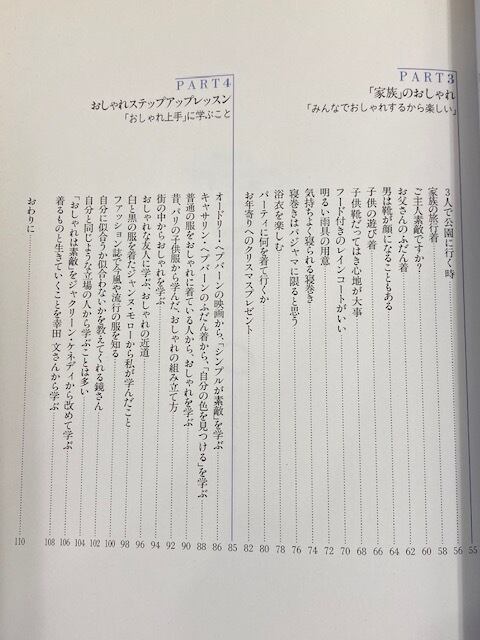 PART3
「家族」のおしゃれ
「みんなでおしゃれするから楽しい」 55
3人で公園に行く時 56
家族の旅行着 58
ご主人素敵ですか? 60
お父さんのふだん着 62
男は靴が顔になることもある 64
子供の遊び着 66
子供靴だってはき心地が大事 68
フード付きのレインコートがいい 70
明るい雨具の用意 72
気持ちよく寝られる寝巻き 74
寝巻きはパジャマに限ると思う 76
浴衣を楽しむ 78
パーティに何を着て行くか 80
お年寄りへのクリスマスプレゼント 82
PART4
おしゃれステップアップレッスン
「おしゃれ上手」に学ぶこと 85
オードリー・ヘプバーンの映画から、「シンプルが素敵」を学ぶ 86
キャサリン・ヘプバーンのふだん着から、「自分の色を見つける」を学ぶ 88
普通の服をおしゃれに着ている人から、おしゃれを学ぶ 90
昔、パリの子供服から学んだ、おしゃれの組み立て方 92
街の中からおしゃれを学ぶ 94
おしゃれな友人に学ぶ、おしゃれの近道 96
白と黒の服を着たジャンヌ・モローから私が学んだこと 98
ファッション誌で今風や流行の服を知る 100
自分に似合うか似合わないかを教えてくれる鏡さん 102
自分と同じような立場の人から学ぶことは多い 104
「おしゃれは素敵」をジャクリーン・ケネディから改めて学ぶ 106
着るものと生きていくことを幸田 文さんから学ぶ 108
おわりに 110